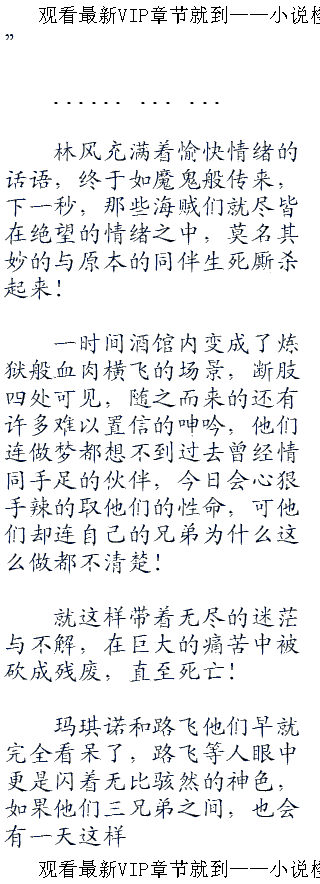 观看最新VIP章节就到——小说
”
...... ... ...
林风充满着愉快情绪的
话语，终于如魔鬼般传来，
下一秒，那些海贼们就尽皆
在绝望的情绪之中，莫名其
妙的与原本的同伴生死厮杀
起来！
一时间酒馆内变成了炼
狱般血肉横飞的场景，断肢
四处可见，随之而来的还有
许多难以置信的呻吟，他们
连做梦都想不到过去曾经情
同手足的伙伴，今日会心狠
手辣的取他们的性命，可他
们却连自己的兄弟为什么这
么做都不清楚！
就这样带着无尽的迷茫
与不解，在巨大的痛苦中被
砍成残废，直至死亡！
玛琪诺和路飞他们早就
完全看呆了，路飞等人眼中
更是闪着无比骇然的神色，
如果他们三兄弟之间，也会
有一天这样
观看最新VIP章节就到——小说